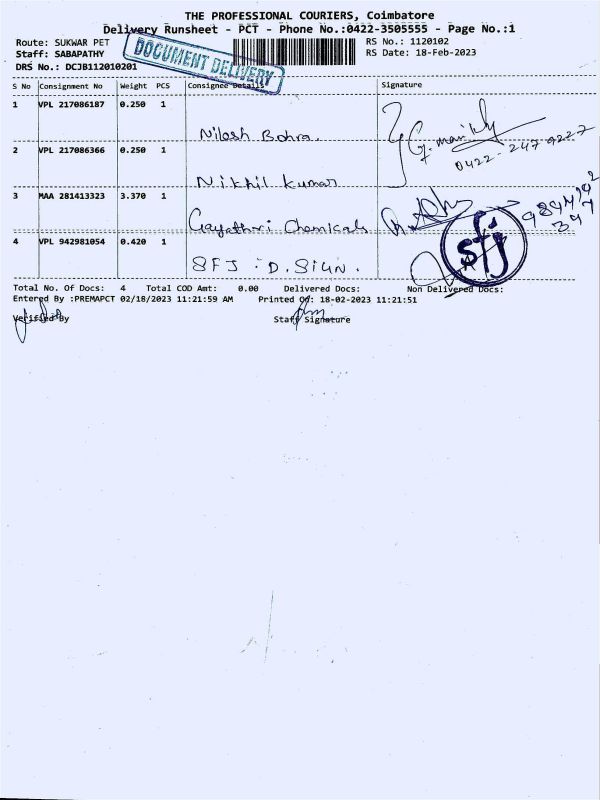 THE PROFESSIONAL COURIERS, Coimbatore
Delivery Runsheet - PCT - Phone No.:0422-3505555 - Page No.:1
Route: SUKWAR PET
RS No.: 1120102
Staff: SABAPATHY
RS Date: 18-Feb-2023
DRS No.: DCJB112010201
DOCUMENT DELIVERY
S No Consignment No Weight PCS Consignee Details Signature
1 VPL 217086187 0.250 1
Nilesh Bohra.
0422-247 9227
2 VPL 217086366 0.250 1
Nikhil Kumar
3 MAA 281413323 3.370 1
Gayathri Chemicals
4 VPL 942981054 0.420 1
sfj
SFJ . D. SIGN.
Total No. Of Docs: 4 Total COD Amt: 0.00 Delivered Docs: Non Delivered Docs:
Entered By :PREMAPCT 02/18/2023 11:21:59 AM Printed On: 18-02-2023 11:21:51
Verified By Staff Signature